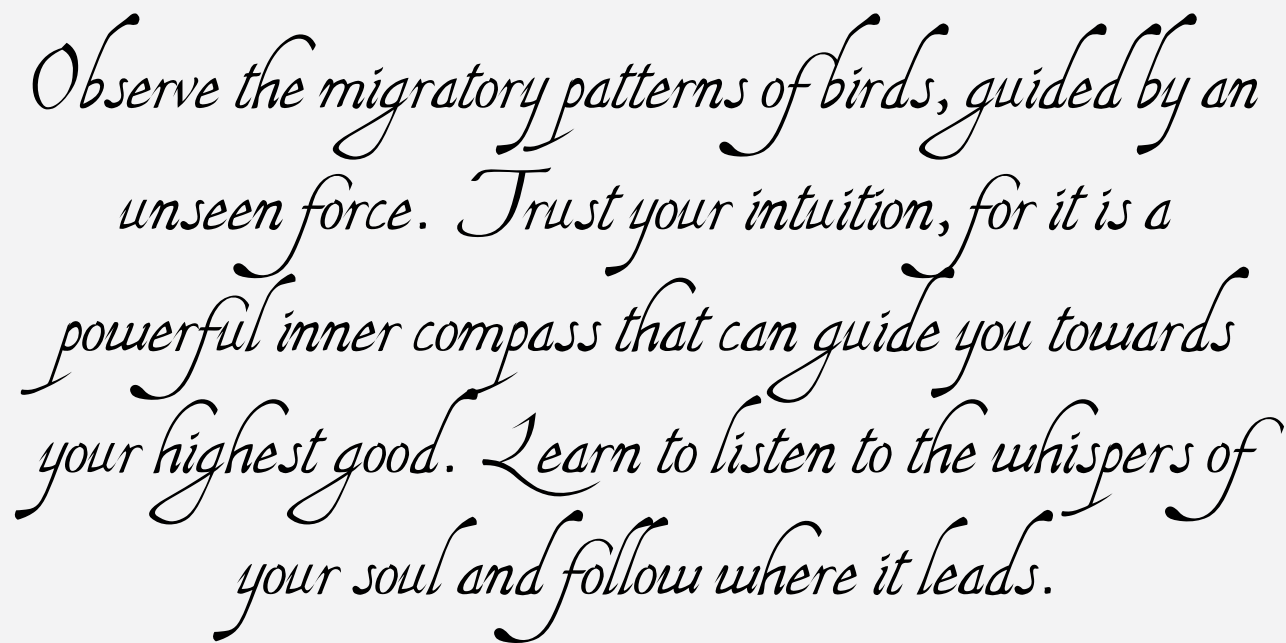 Observe the migratory patterns of birds, guided by an
unseen force. Trust your intuition, for it is a
powerful inner compass that can guide you towards
your highest good. Learn to listen to the whispers of
your soul and follow where it leads.